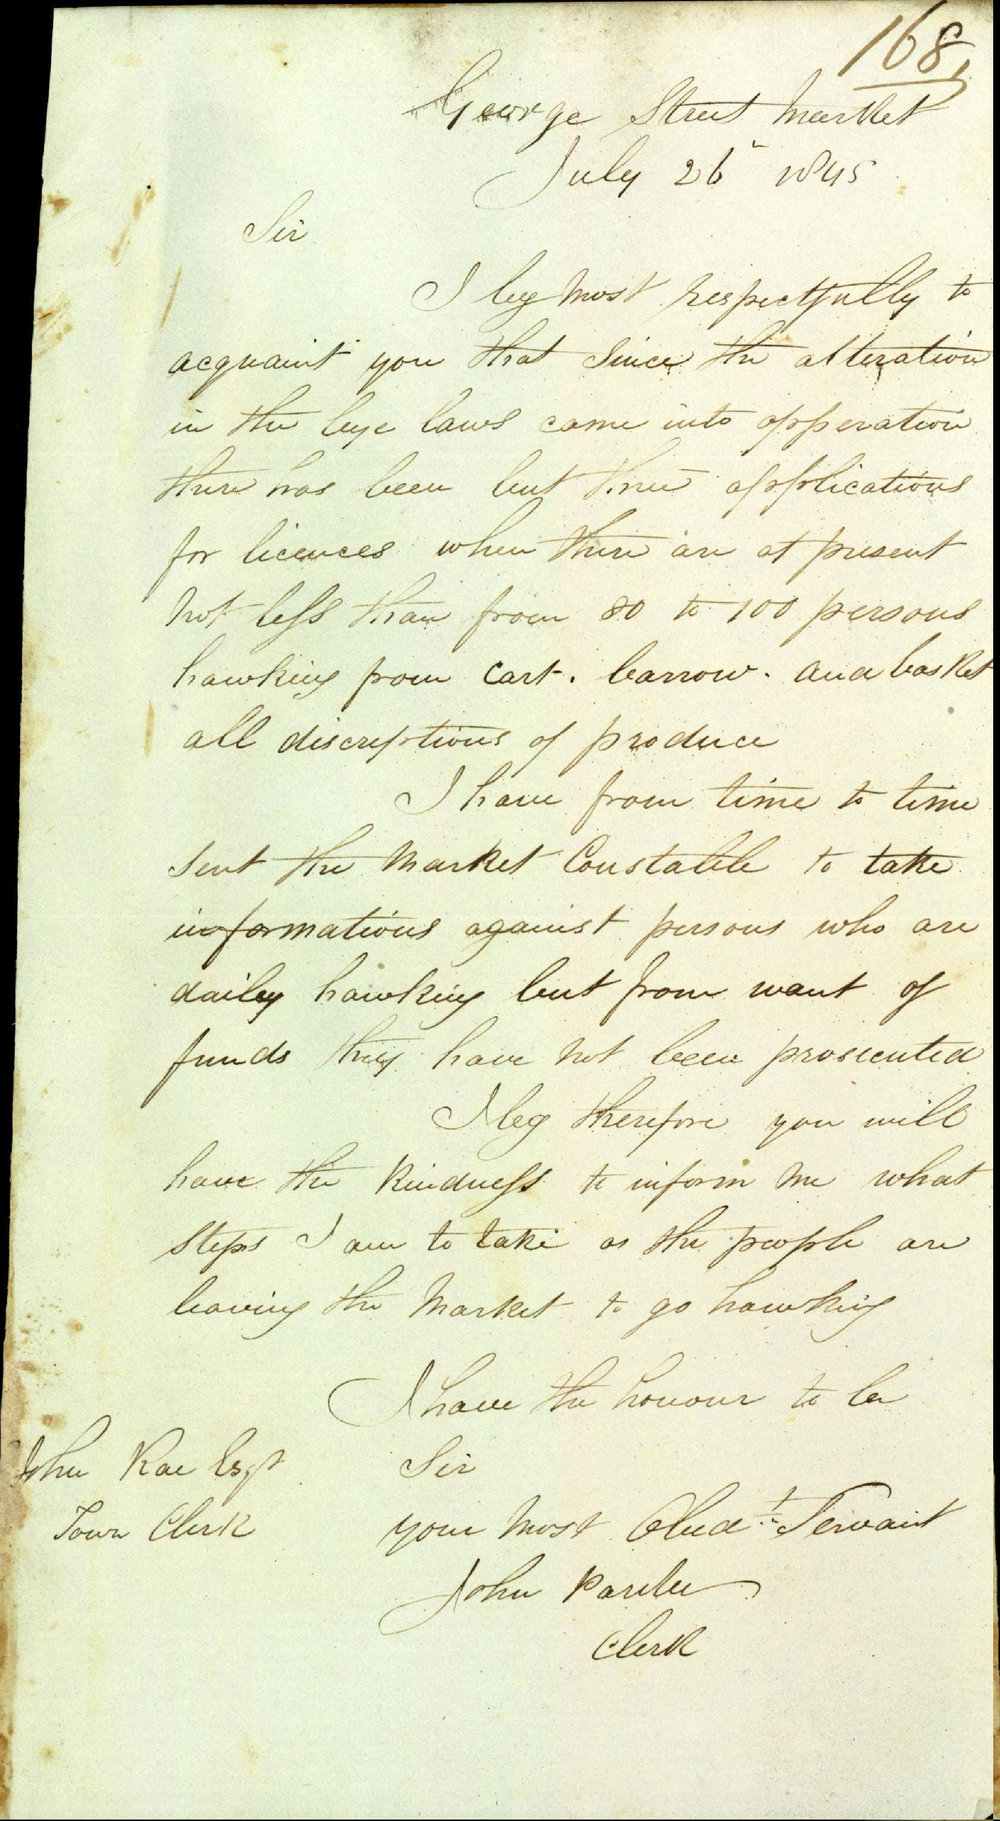 168,
George Street Market
July 26th 1845
Sir
I beg most respectfully to
acquaint you that since the alteration
in the bye laws came into opperation
there has been but three applications
for licences when there are at present
not less than from 80 to 100 persons
hawking from cart. barrow. and basket
all discreptions of produce
I have from time to time
sent the Market Constable to take
informations against persons who are
daily hawking but from want of
funds they have not been prosecuted
I beg therefore you will
have the kindness to inform me what
steps I am to take as the people are
leaving the Market to go hawking
I have the honour to be
Sir
your most Obedt Servant
John
Clerk
John Rae Esqr
Town Clerk